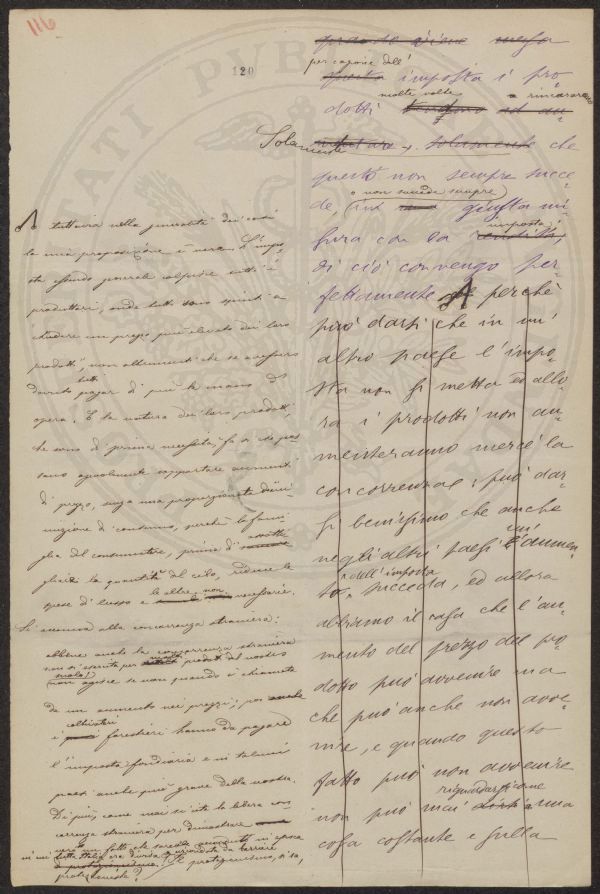 116
120
prodo viene messa
per cagione dell'
questa imposta i pro
molte volte a rincararsi
dotti tendono ad au
Solamente
mentare, solamente che
questo non sempre succe
o non succede sempre
de, giusta mi
imposta
sura con la rendita;
di ciò convengo per
fettamente perchè
può darsi che in un'
altro paese l'impo
sta non si metta ed allo
ra i prodotti non au
menteranno mercè la
concorrenza; può dar
si benissimo che anche
un'
negli altri paesi l'aumen
dell'imposta
to succeda, ed allora
abbiamo il caso che l'au
mento del prezzo del pro
dotto può avvenire ma
che può anche non avve
nire, e quando questo
fatto può non avvenire
riguardarsi come
non può mai dirsi una
cosa costante e sulla
A tuttavia nella generalità dei casi
la mia proposizione è vera. L'impo
sta essendo generale colpisce tutti i
produttori, onde tutti sono spinti a
chiedere un prezzo più elevato dei loro
prodotti, non altrimenti che se avessero
tutti
dovuto pagar di più la mano d'
opera. E la natura dei loro prodotti,
che sono di prima necessità, fa sì che pos
sano egualmente sopportare aumenti
di prezzo, senza una proporzionata dimi
nuzione di consumo, perchè la fami
glia del consumatore, prima di
la quantità del cibo, riduce le
spese di lusso e le altre non necessarie.
Si accenna alla concorrenza straniera:
ebbene anche la concorrenza straniera
non si esercita per molti prodotti del nostro
suolo!
non agisce se non quando è chiamata
da un aumento nei prezzi; poi anche
coltivatori
i forestieri hanno da pagare
l'imposta fondiaria e in taluni
paesi anche più grave della nostra.
Di più, come mai si cita la libera con
correnza straniera per dimostrare
vero un fatto che sarebbe avvenuto in epoca
in cui tutta Italia era divisa e circondata da barriere
protezioniste?